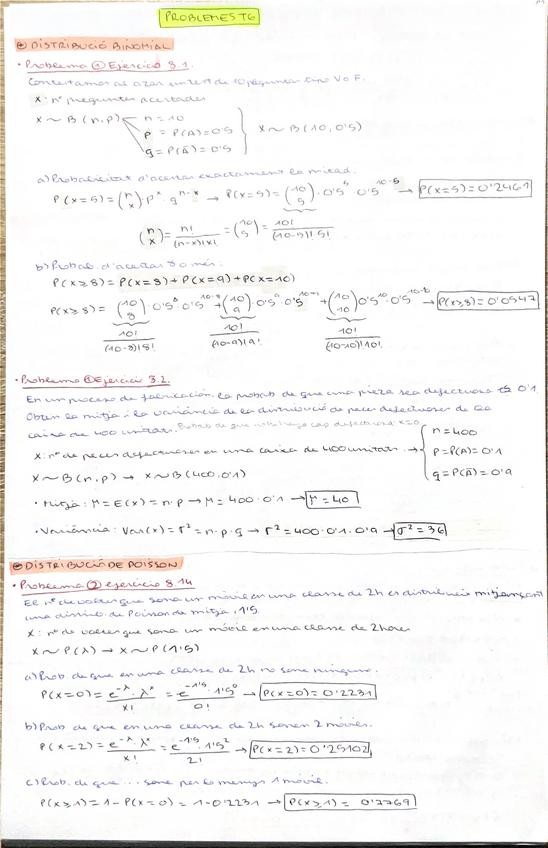 PROBLEMES T6
DISTRIBUCIÓ BINOMIAL
· Problema 1 Ejercicio 3.1.
Contestamos al azar un test de 10 preguntas tipo V o F.
X: nº preguntes acertades
X ~ B(n,p) n = 10
p = P(A) = 0'5 X ~ B(10, 0'5)
q = P(Ā) = 0'5
a) Probabilitat d'acertar exactament la mitad.
P(x=5) = (n x) · p^x · q^(n-x) → P(x=5) = (10 5) · 0'5^5 · 0'5^(10-5) → P(x=5) = 0'2461
(n x) = n! / (n-x)! x! = (10 5) = 10! / (10-5)! 5!
b) Probab. d'acertar 8 o més.
P(x≥8) = P(x=8) + P(x=9) + P(x=10)
P(x≥8) = (10 8) · 0'5^8 · 0'5^(10-8) + (10 9) · 0'5^9 · 0'5^(10-9) + (10 10) 0'5^10 · 0'5^(10-10) → P(x≥8) = 0'0547
10! / (10-8)! 8! 10! / (10-9)! 9! 10! / (10-10)! 10!
· Problema Ejercicio 3.2.
En un proceso de fabricación, la probab de que una pieza sea defectuosa es 0'1.
Obten la mitja i la variància de la distribució de peces defectuoses de
caixa de 400 unitats.
X: nº de peces defectuoses en una caixa de 400 unitats → n = 400
p = P(A) = 0'1
q = P(Ā) = 0'9
X ~ B(n,p) → X ~ B(400, 0'1)
· Mitja: μ = E(x) = n · p → μ = 400 · 0'1 → μ = 40
· Variància: Var(x) = σ² = n · p · q → σ² = 400 · 0'1 · 0'9 → σ² = 36
DISTRIBUCIÓ DE POISSON
· Problema 2 ejercicio 3.14
El nº de voltes que sona un mòvil en una classe de 2h es distribueix mitjançant
una distrib. de Poisson de mitja 1'5
X: nº de voltes que sona un mòvil en una classe de 2 hores
X ~ P(λ) → X ~ P(1'5)
a) Prob. de que en una classe de 2h no sone ninguno.
P(x=0) = e^-λ · λ^x / x! = e^-1'5 · 1'5^0 / 0! → P(x=0) = 0'2231
b) Prob de que en una classe de 2h sonen 2 mòvils.
P(x=2) = e^-λ · λ^x / x! = e^-1'5 · 1'5^2 / 2! → P(x=2) = 0'25102
c) Prob. de que ... sone per lo menys 1 mòvil.
P(x≥1) = 1 - P(x=0) = 1 - 0'2231 → P(x≥1) = 0'7769